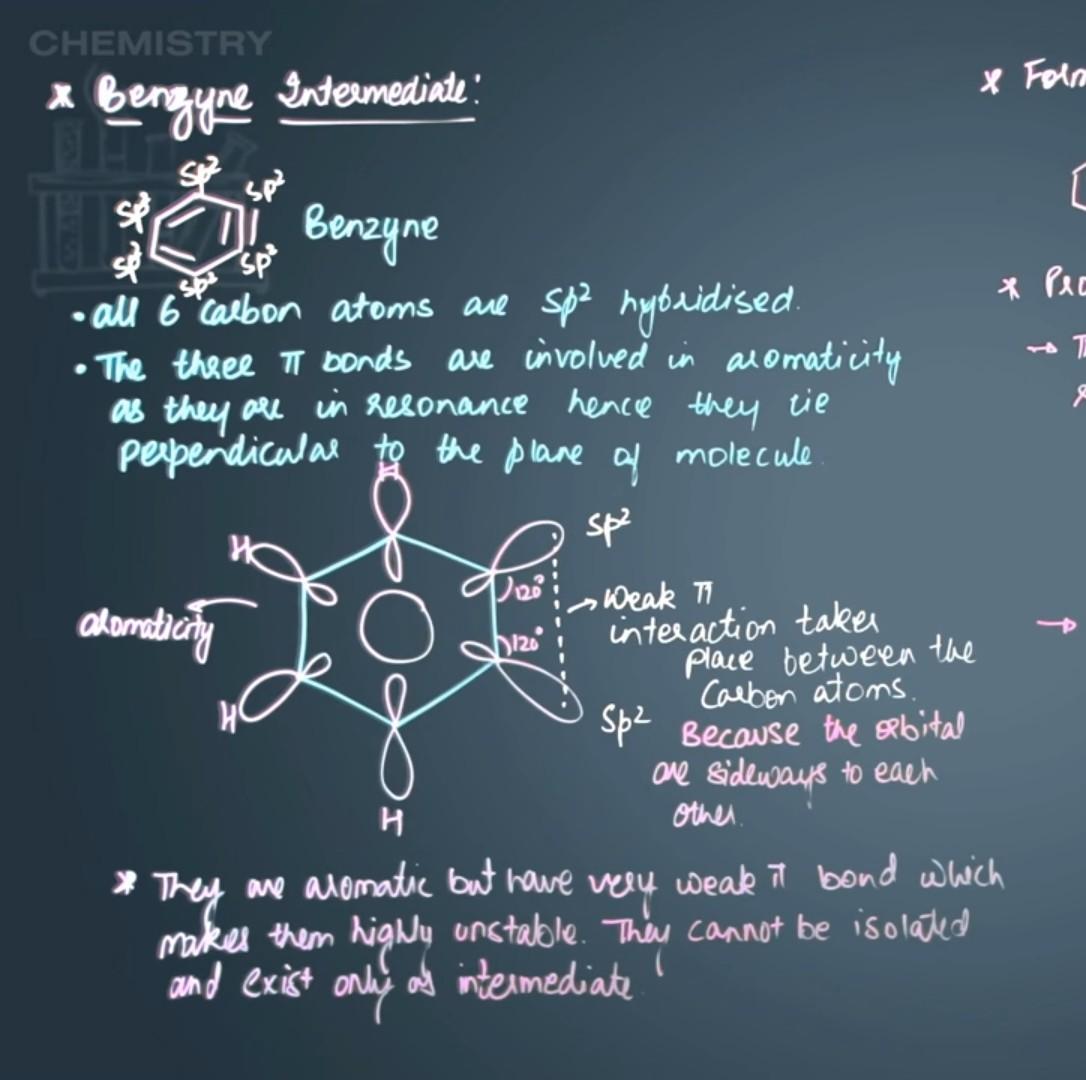 CHEMISTRY
* Benzyne Intermediate:
sp²
sp²
sp²
sp²
sp²
sp²
Benzyne
• all 6 carbon atoms are sp² hybridised.
• The three π bonds are involved in aromaticity
as they are in resonance hence they lie
perpendicular to the plane of molecule.
H
H
sp²
120°
aromaticity
→ Weak π
interaction takes
place between the
Carbon atoms.
120°
H
sp²
Because the orbital
are sideways to each
other.
H
* They are aromatic but have very weak π bond which
makes them highly unstable. They cannot be isolated
and exist only as intermediate.
* Form
* Pro
→ T
→